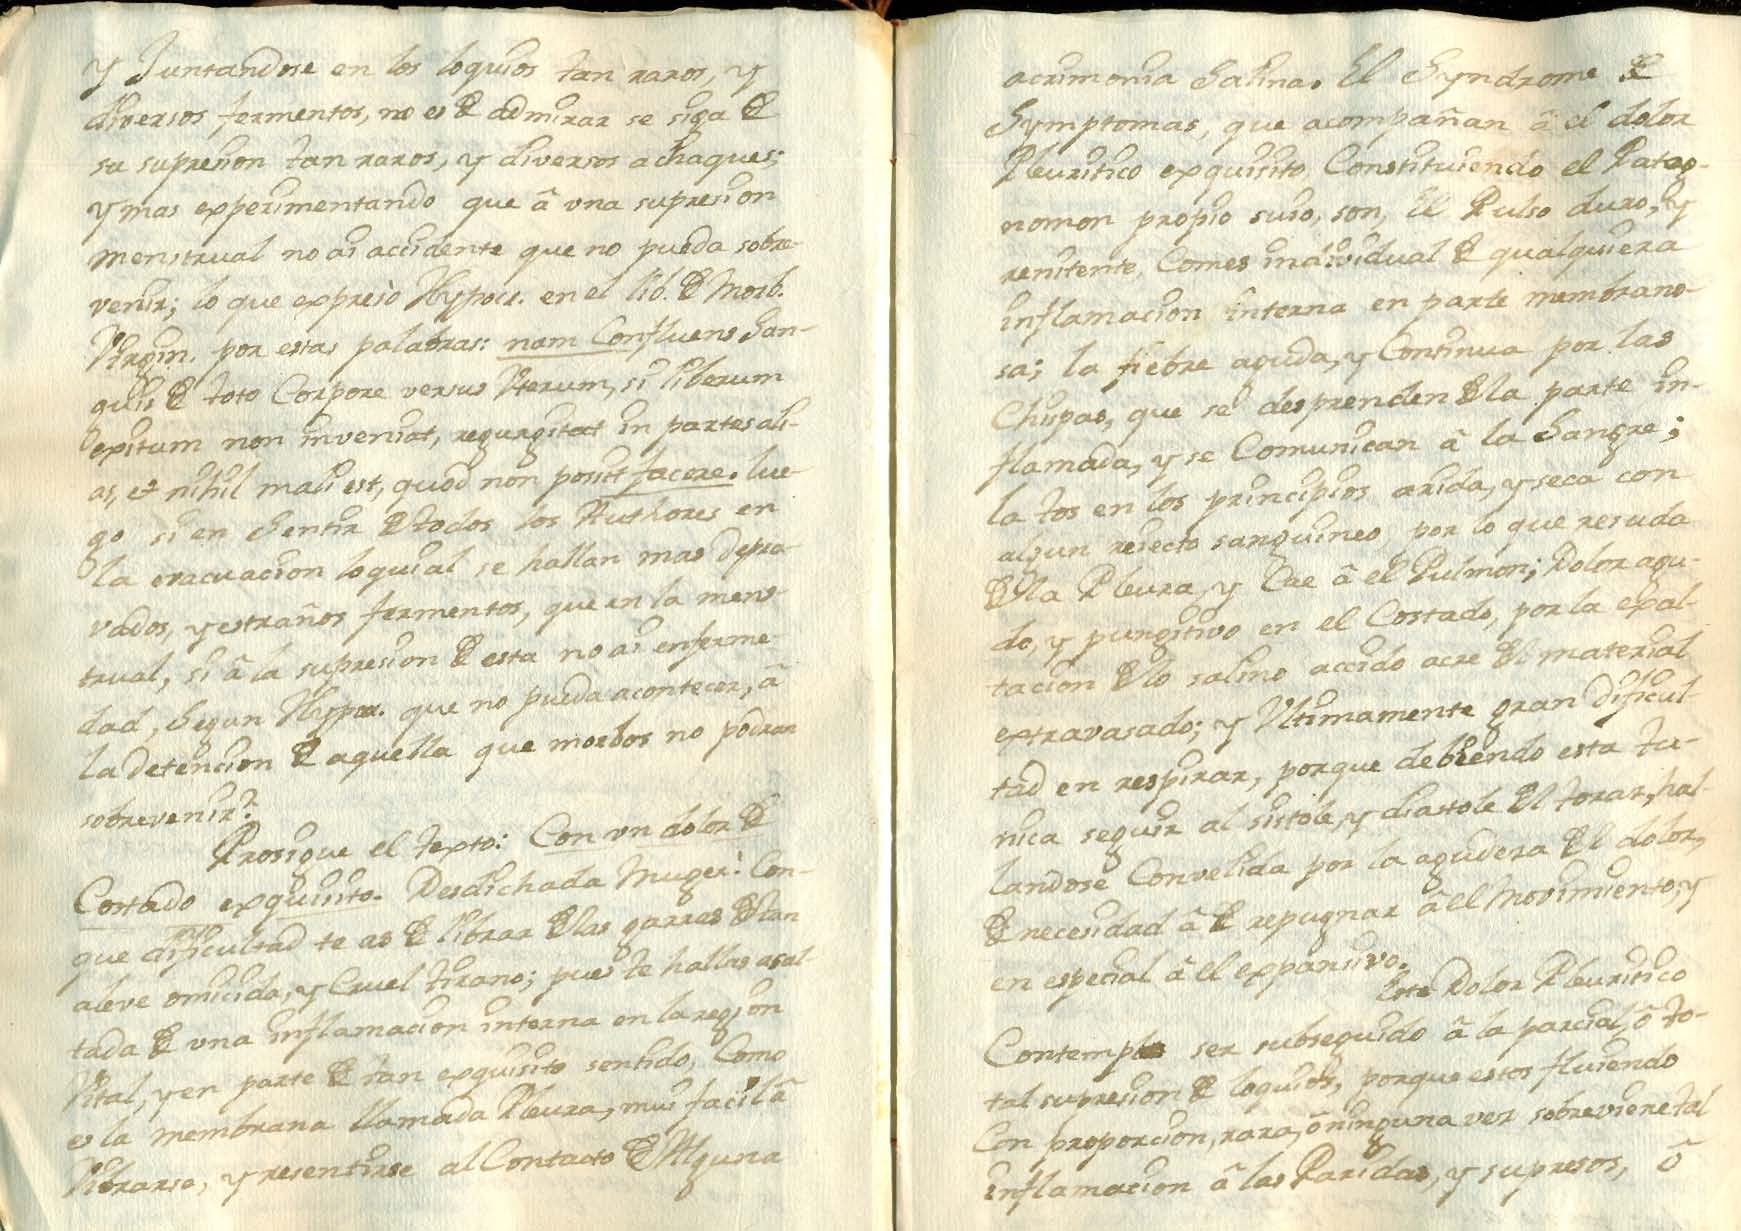 y Juntandose en los loquios tan raros, y
diversos fermentos, no es de admirar se siga de
su supresion tan raros, y diversos achaques;
y mas experimentando que â una supresion
menstrual no ai accidente que no pueda sobre-
venir; lo que expresò Hypocr. en el lib. de Morb.
Virgin. por estas palabras: nam Confluens San-
guis de toto Corpore versus Uterum, si liberum
exitum non inveniat, regurgitat in partes ali-
as, et nihil mali est, quod non possit facere. lue-
go si en Sentir de todos los Authores en
la evacuacion loquial se hallan mas depra-
vados, y estraños fermentos, que en la mens-
trual, si â la supresion de esta no ai enferme-
dad, Segun Hypocr. que no pueda acontecer, â
la detencion de aquella que morbos no podran
sobrevenir?
Prosigue el texto: Con un dolor de
Costado exquisito. Desdichada Muger! Con-
que dificultad te as de librar de las garras de tan
aleve omicida, y Cruel tirano; pues te hallas asal-
tada de una inflamacion interna en la region
Vital, y en parte de tan exquisito sentido, Como
es la membrana llamada Pleura, mui facil â
Vibrarse, y resentirse al Contacto de Alguna
acrimonia Salina. El Syndrome de
Symptomas, que acompañan â el dolor
Pleuritico exquisito, Constituiendo el Patog-
nomon proprio suio, son, El Pulso duro, y
renitente, Comes individual de qualquiera
inflamacion interna en parte membrano-
sa; la fiebre aguda, y Continua por las
Chispas, que se desprenden de la parte in-
flamada, y se Comunican â la Sangre;
la tos en los principios arida, y seca con
algun reiecto sanguineo, por lo que resuda
de la Pleura, y Cae â el Pulmon; Dolor agu-
do, y pungitivo en el Costado, por la exal-
tacion de lo salino accido acre del material
extravasado; y Ultimamente gran dificul-
tad en respirar, porque debiendo esta tu-
nica seguir al sistole, y diastole del torax, hal-
landose Convelida por la agudeza del dolor,
de necesidad â de repugnar â el Movimiento, y
en especial â el expansivo.
Este Dolor Pleuritico
Contemplo ser subseguido â la parcial, ô to-
tal supresion de loquios, porque estos fluiendo
Con proporcion, rara, ô ninguna vez sobreviene tal
inflamacion â las Paridas, y supresos, ô